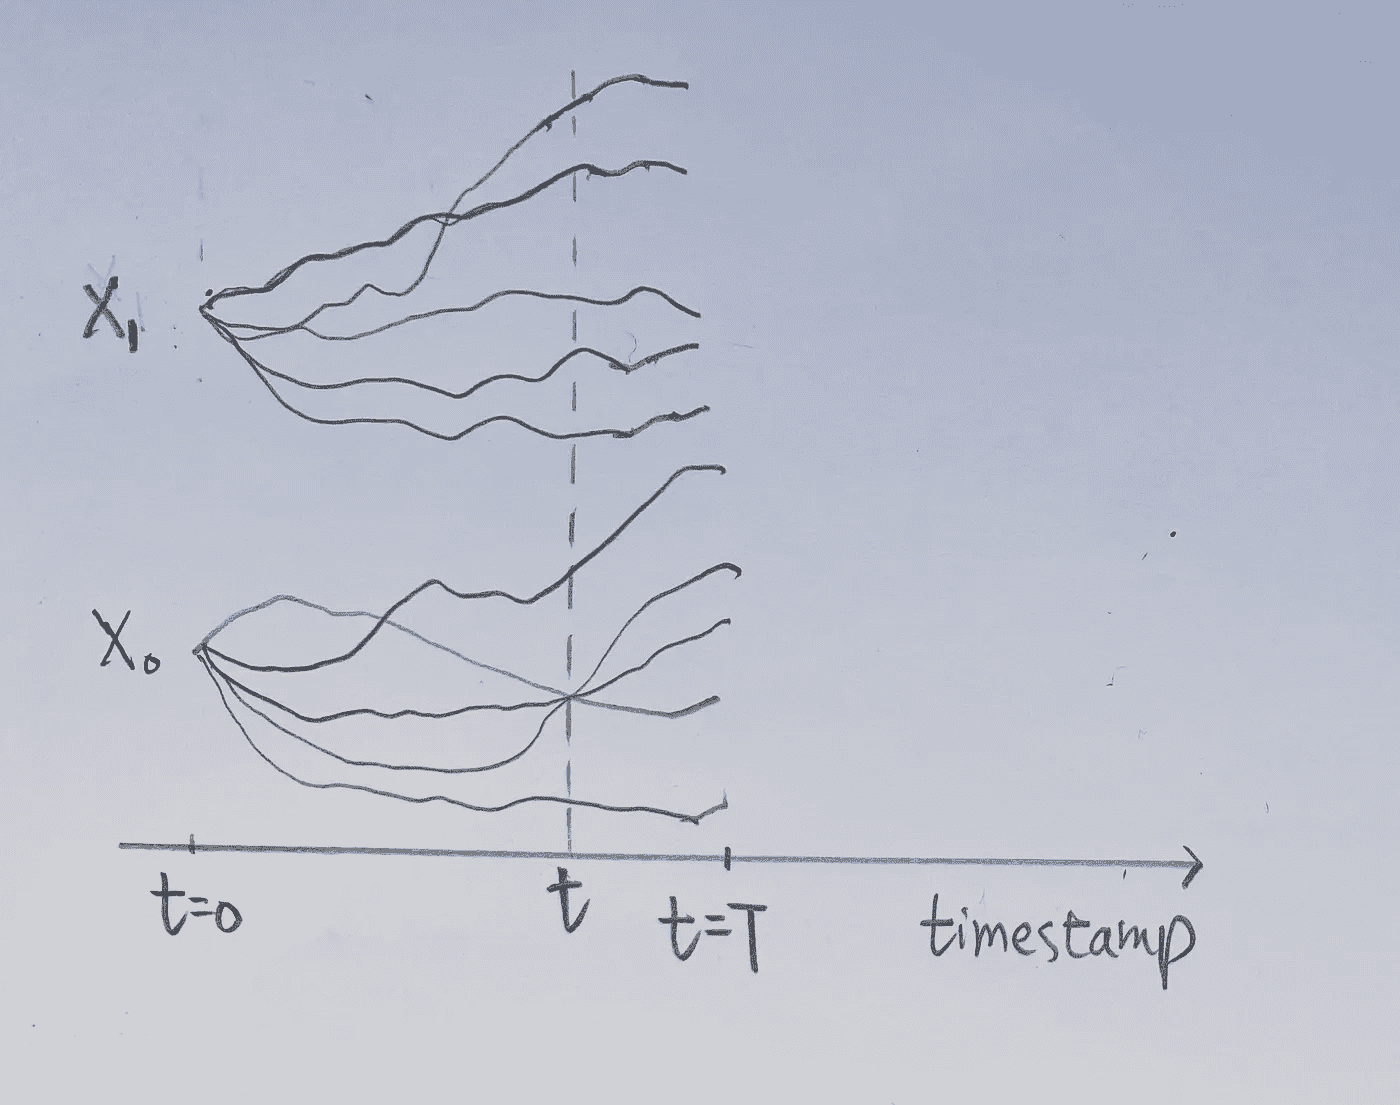 X₁
X₀
t=0
t
t=T
timestamp